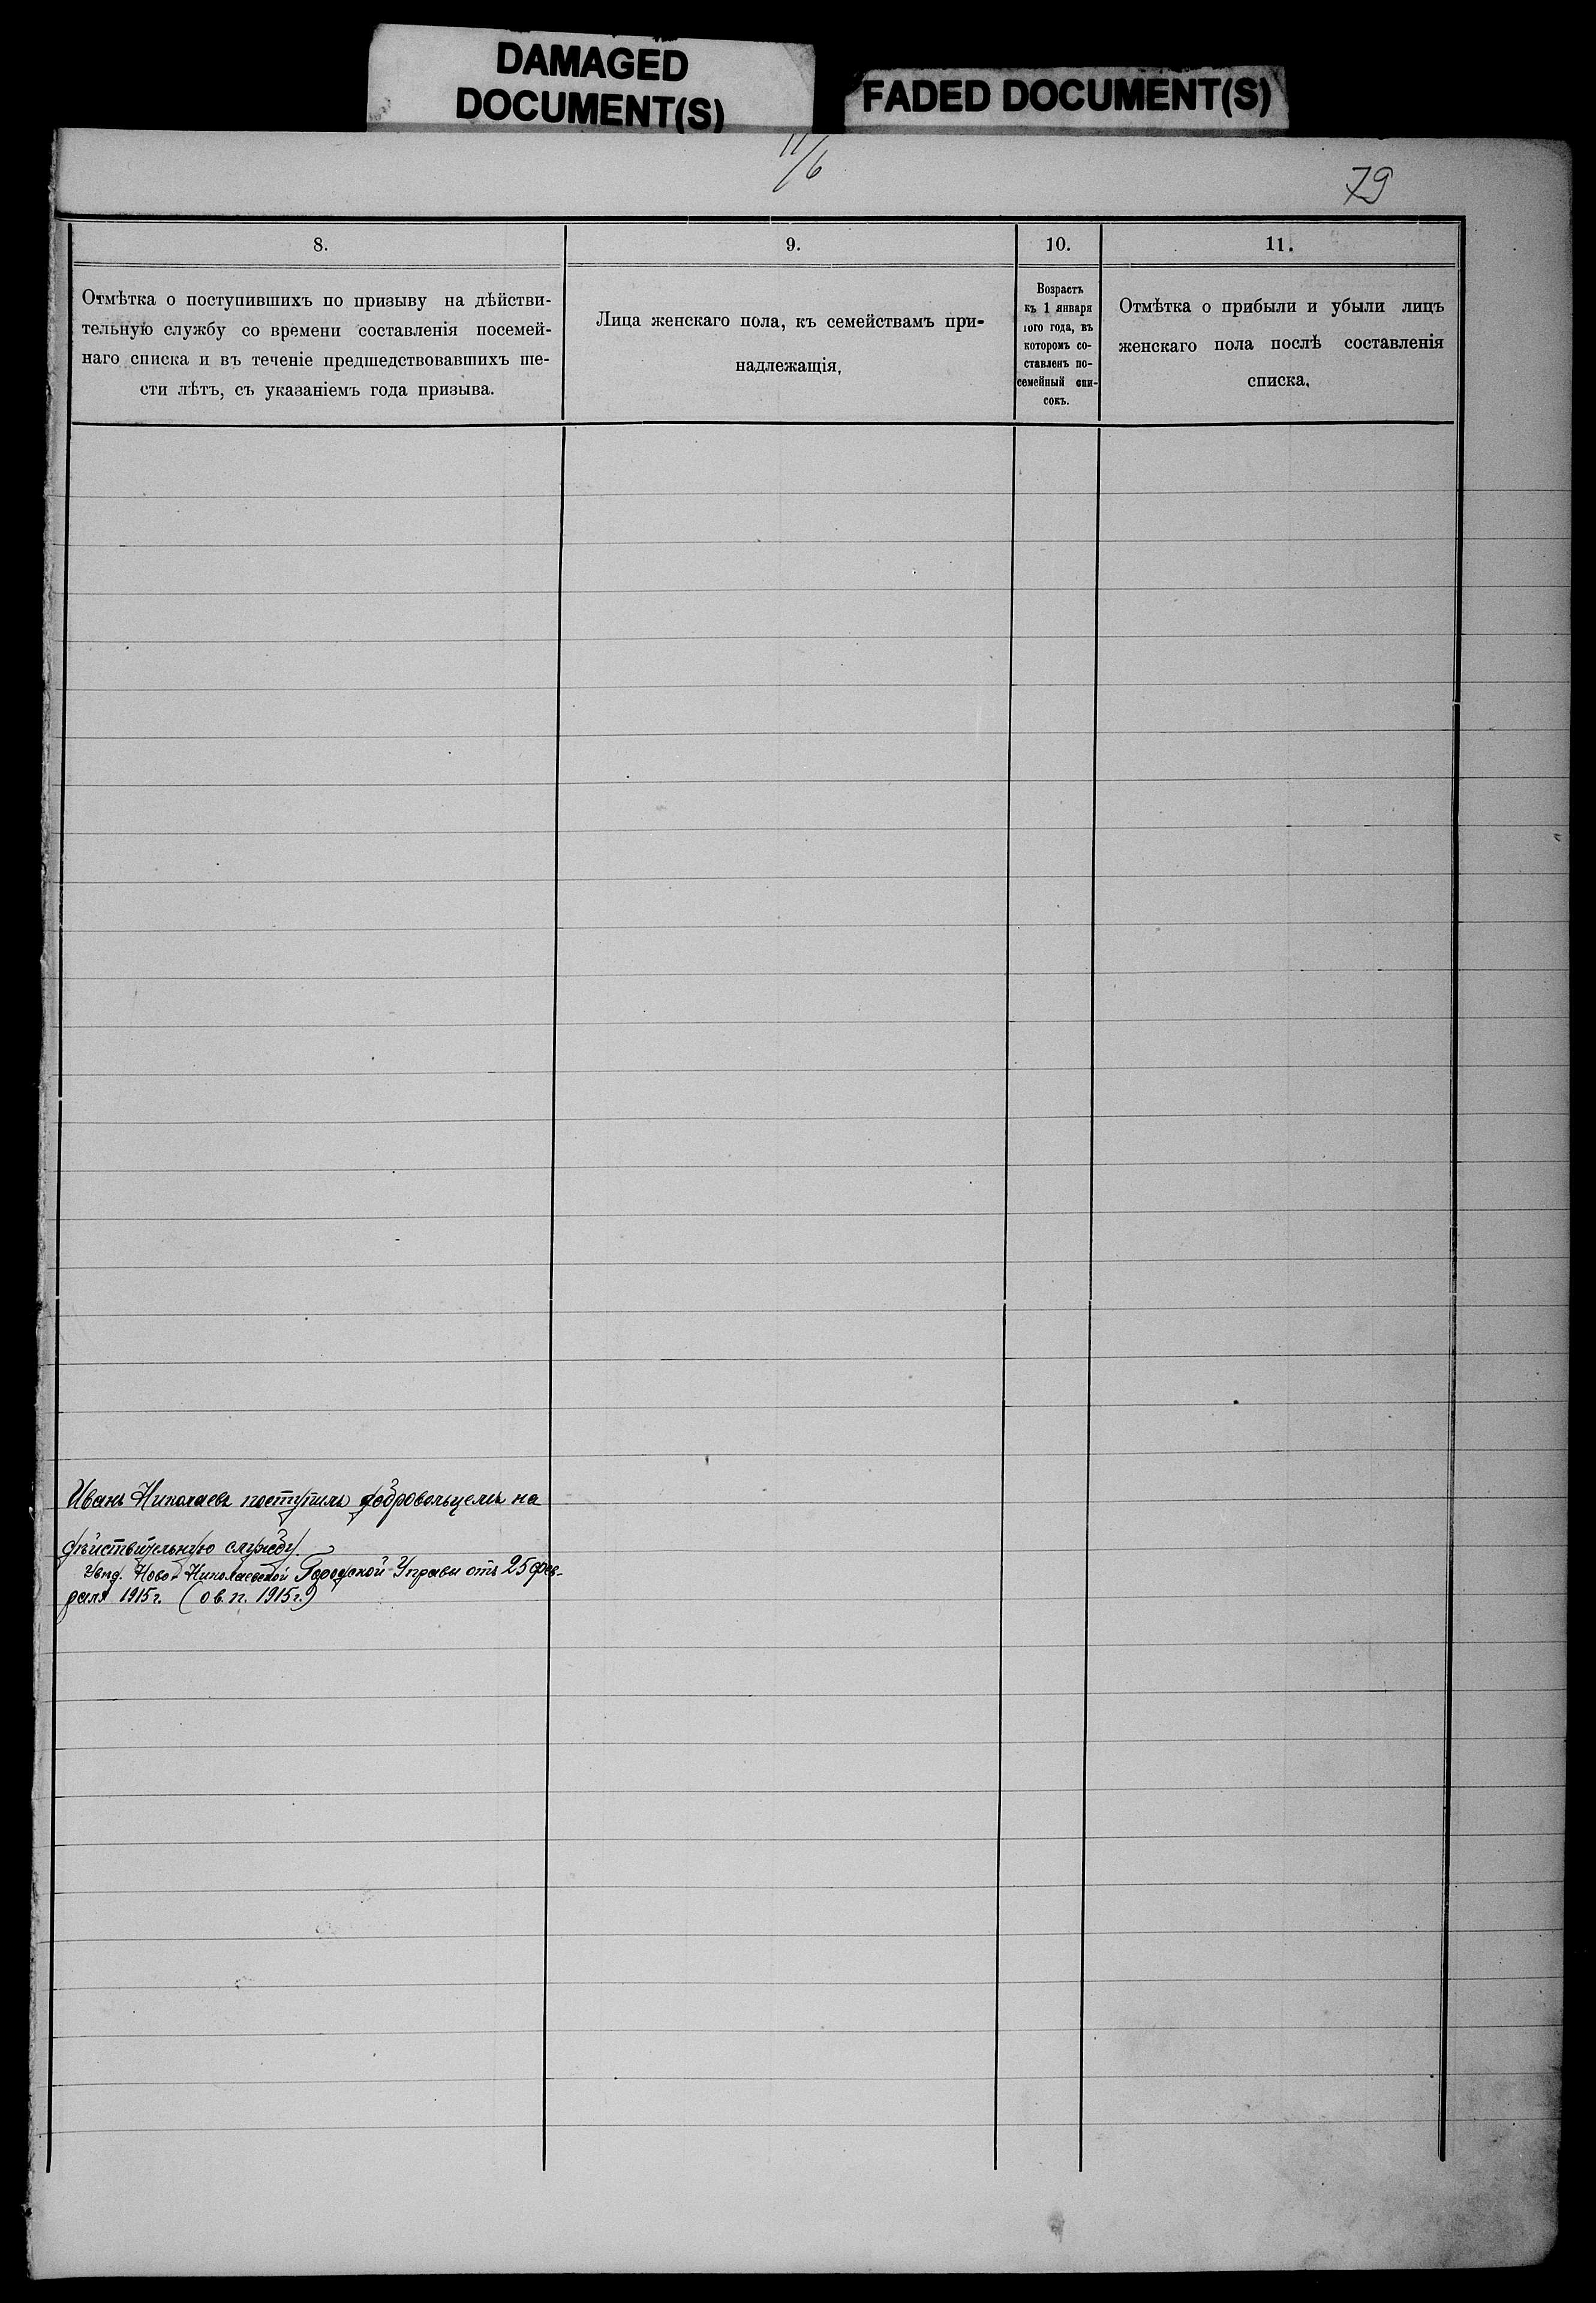 DAMAGED
DOCUMENT(S)
FADED DOCUMENT(S)
11/6
79
8.
9.
10.
11.
Отмѣтка о поступившихъ по призыву на дѣйстви-
тельную службу со времени составленія посемей-
наго списка и въ теченіе предшедствовавшихъ ше-
сти лѣтъ, съ указаніемъ года призыва.
Лица женскаго пола, къ семействамъ при-
надлежащія,
Возрастъ
къ 1 января
того года, въ
которомъ со-
ставленъ по-
семейный спи-
сокъ.
Отмѣтка о прибыли и убыли лицъ
женскаго пола послѣ составленія
списка,
Иванъ Николаевъ поступилъ добровольцемъ на
дѣйствительную службу.
Увѣд. Ново-Николаевской Городской Управы отъ 25 фев-
раля 1915 г. (о в. п. 1915 г.)